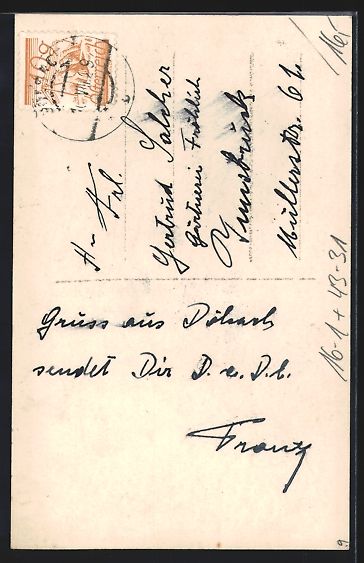 An Frl.
Gertrud Salcher
Gärtnerei Fröhlich
Innsbruck
Müllerstr.
Gruss aus Dölsach
sendet Dir D. u. D. b.
Franz
16-1+43-31
16,-
9